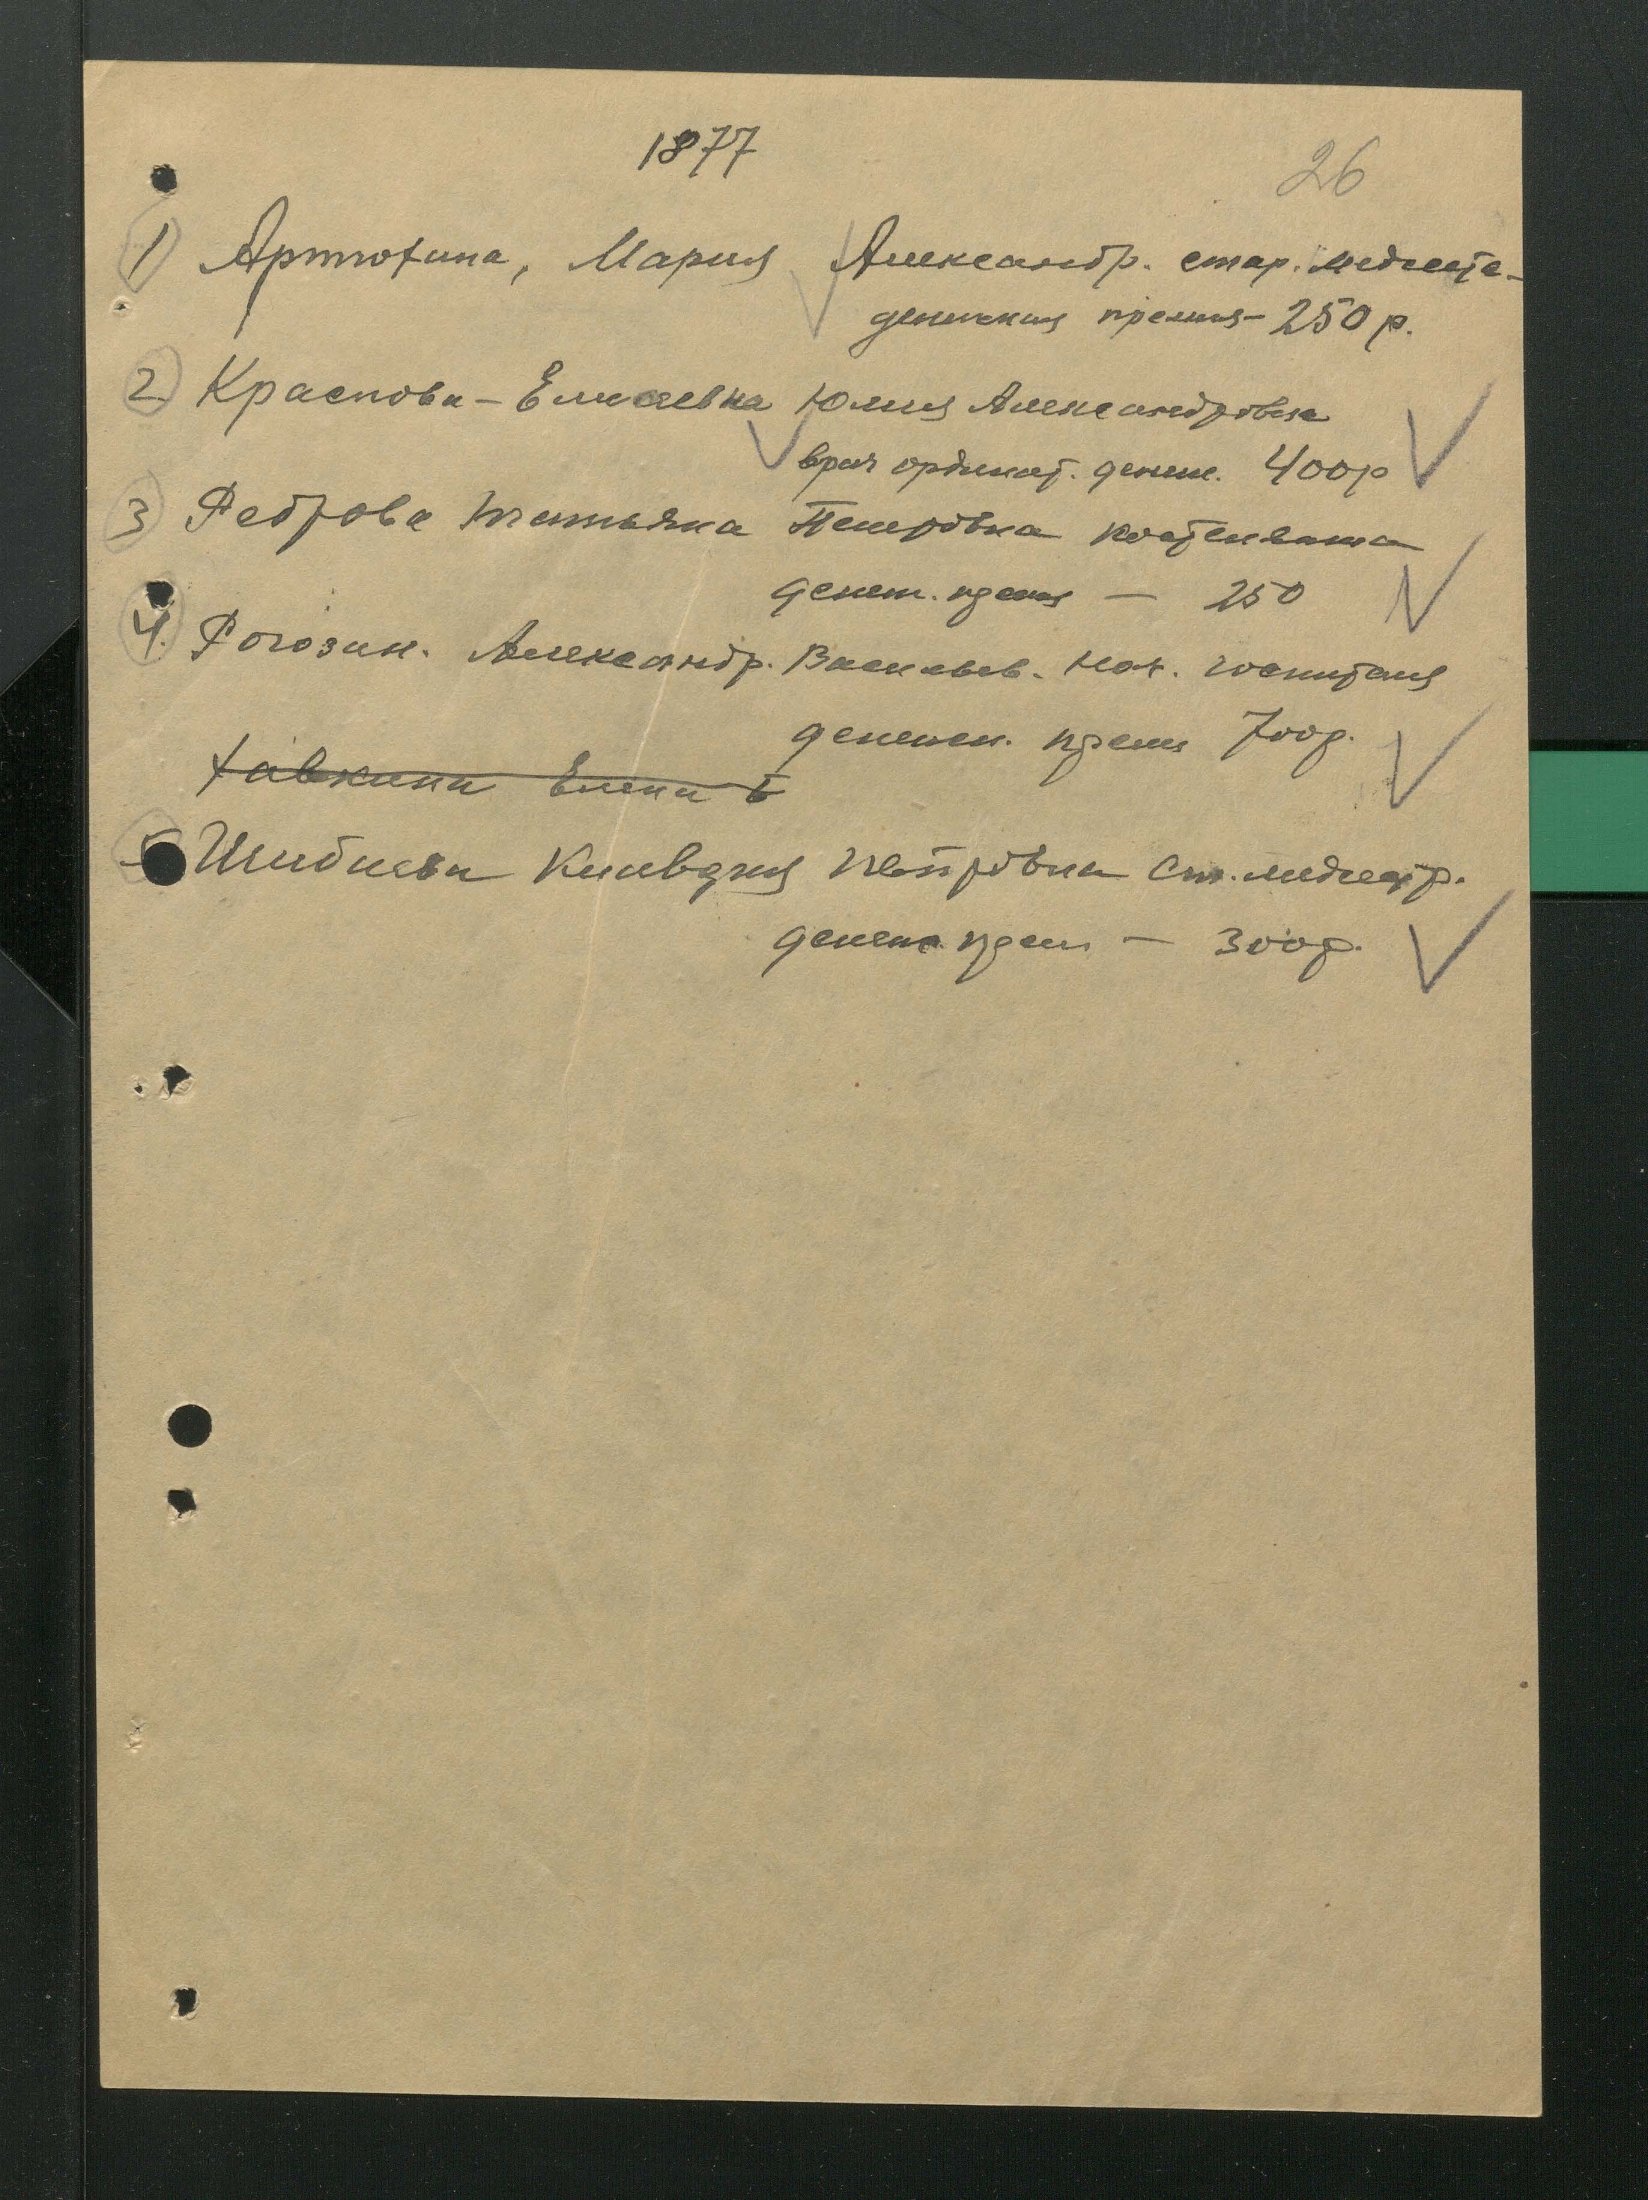 1877
26
1) Артюхина, Мария Александр. стар. медсестр-
денежная премия - 250 р.
2) Краснова-Елисеевна Юлия Александровна
врач ординат. денеж. 400р
3 Реброва Татьяна Петровна
денеж. премия — 250
4. Рогозин. Александр. Васильев. Нач. госпиталя
денежн. премия 700р.
Хавкина Елена Б
5 Клавдия Петровна Ст. медсестр.
денежн. прем — 300р.